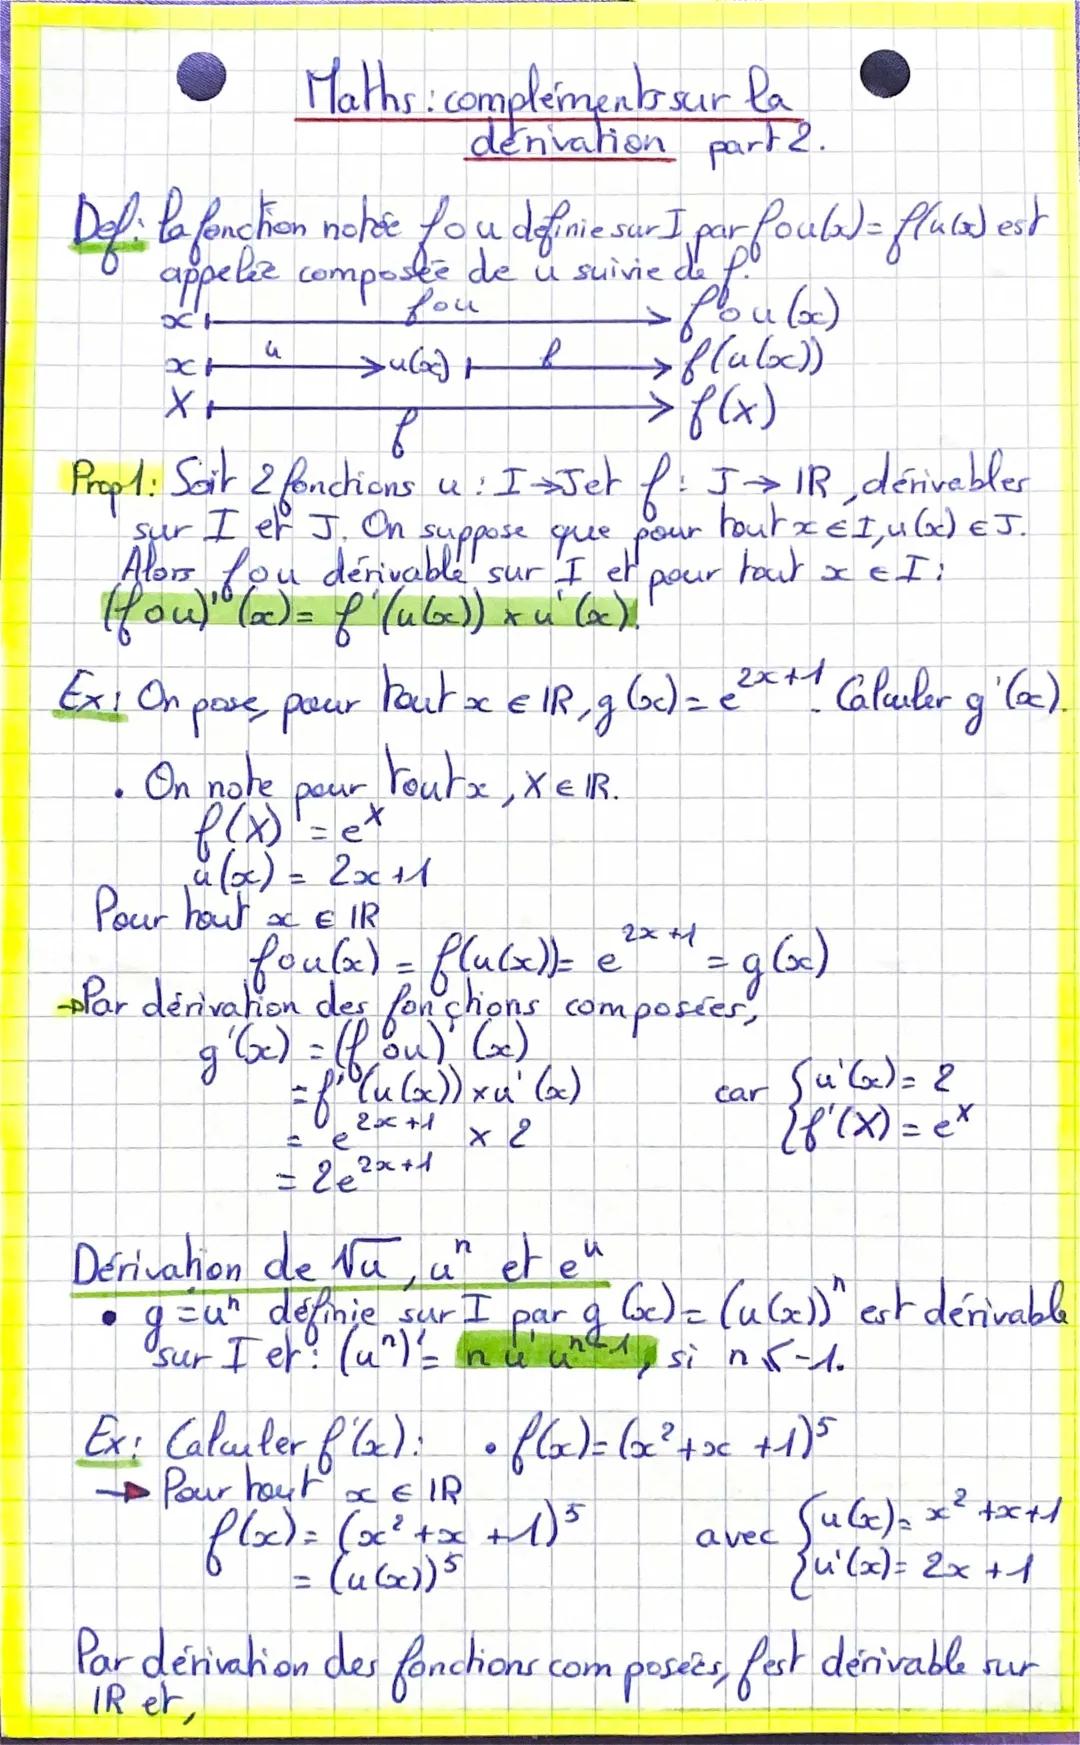 Maths : compléments sur la
dérivation part 2.
Def: la fonction notée fou définie sur I par fou(x) = f(u(x) est
appelée composée de u suivie de f.
x fou fou(x)
x u u(x) f f(u(x))
X f f(x)
Prop 1: Soit 2 fonctions u : I → J et f : J → IR, dérivables
sur I et J. On suppose que pour tout x ∈ I, u(x) ∈ J.
Alors fou dérivable sur I et pour tout x ∈ I :
(fou)'(x) = f'(u(x)) x u'(x).
Ex: On pose, pour tout x ∈ IR, g(x) = e^{2x+1}. Calculer g'(x).
• On note pour tout x, X ∈ IR.
f(X) = e^X
u(x) = 2x+1
Pour tout x ∈ IR
fou(x) = f(u(x)) = e^{2x+1} = g(x)
→ Par dérivation des fonctions composées,
g'(x) = (fou)'(x)
= f'(u(x)) x u'(x) car { u'(x) = 2
= e^{2x+1} x 2 { f'(X) = e^X
= 2e^{2x+1}
Dérivation de √u, u^n et e^u
• g = u^n définie sur I par g(x) = (u(x))^n est dérivable
sur I et : (u^n)' = n u' u^{n-1}, si n ≤ -1.
Ex: Calculer f'(x) : • f(x) = (x² + x + 1)^5
→ Pour tout x ∈ IR
f(x) = (x² + x + 1)^5 avec { u(x) = x² + x + 1
= (u(x))^5 { u'(x) = 2x + 1
Par dérivation des fonctions composées, f est dérivable sur
IR et,